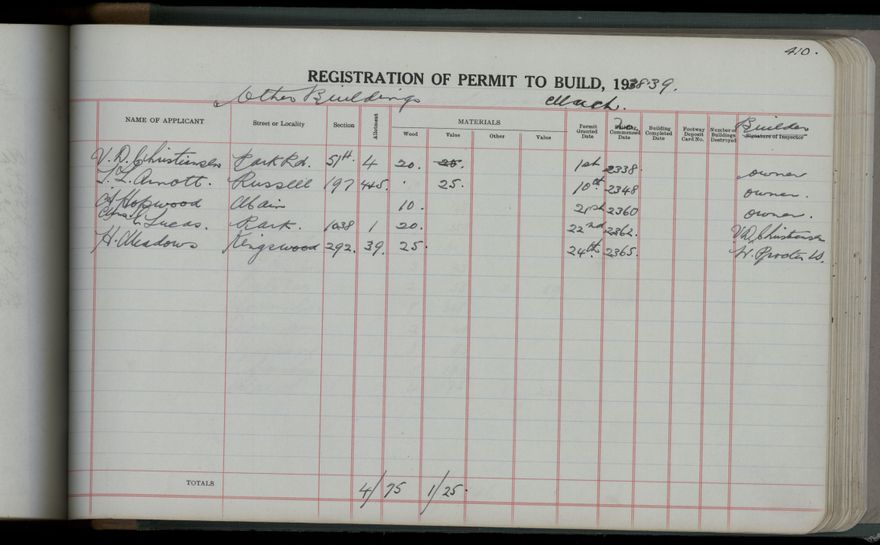 410.
REGISTRATION OF PERMIT TO BUILD, 1938-39.
Other Buildings March.
NAME OF APPLICANT Street or Locality Section Allotment MATERIALS Wood Value Other Value Permit Granted Date No. Commenced Date Building Completed Date Footway Deposit Card No. Number of Buildings Destroyed Builder Signature of Inspector
V. D. Christiansen Park Rd. 51H. 4 20. 25. 1st 2338 owner
Arnott. Russell 197 445. 25. 10th 2348 owner.
Hopwood Main 10. 21st 2360 owner.
Lucas. Park. 1038 1 20. 22nd 2362. V.D. Christiansen
H. Meadows Kingswood 292. 39. 25. 24th. 2365. W. Procter
TOTALS 4/75 1/25.